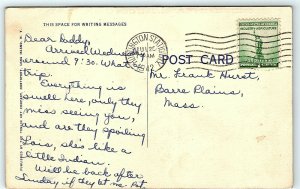 THIS SPACE FOR WRITING MESSAGES
Dear Buddy,
Arrived Wednes
around 9:30. What
trip.
Everything is
swell here, only they
miss seeing you,
and are they spoiling
Lois, she's like a
little Indian.
Will be back after
Sunday, if they let me. Pat
STATION
POST CARD
INDUSTRY AGRICULTURE
Mr. Frank Hurst,
Barre Plains,
Mass.